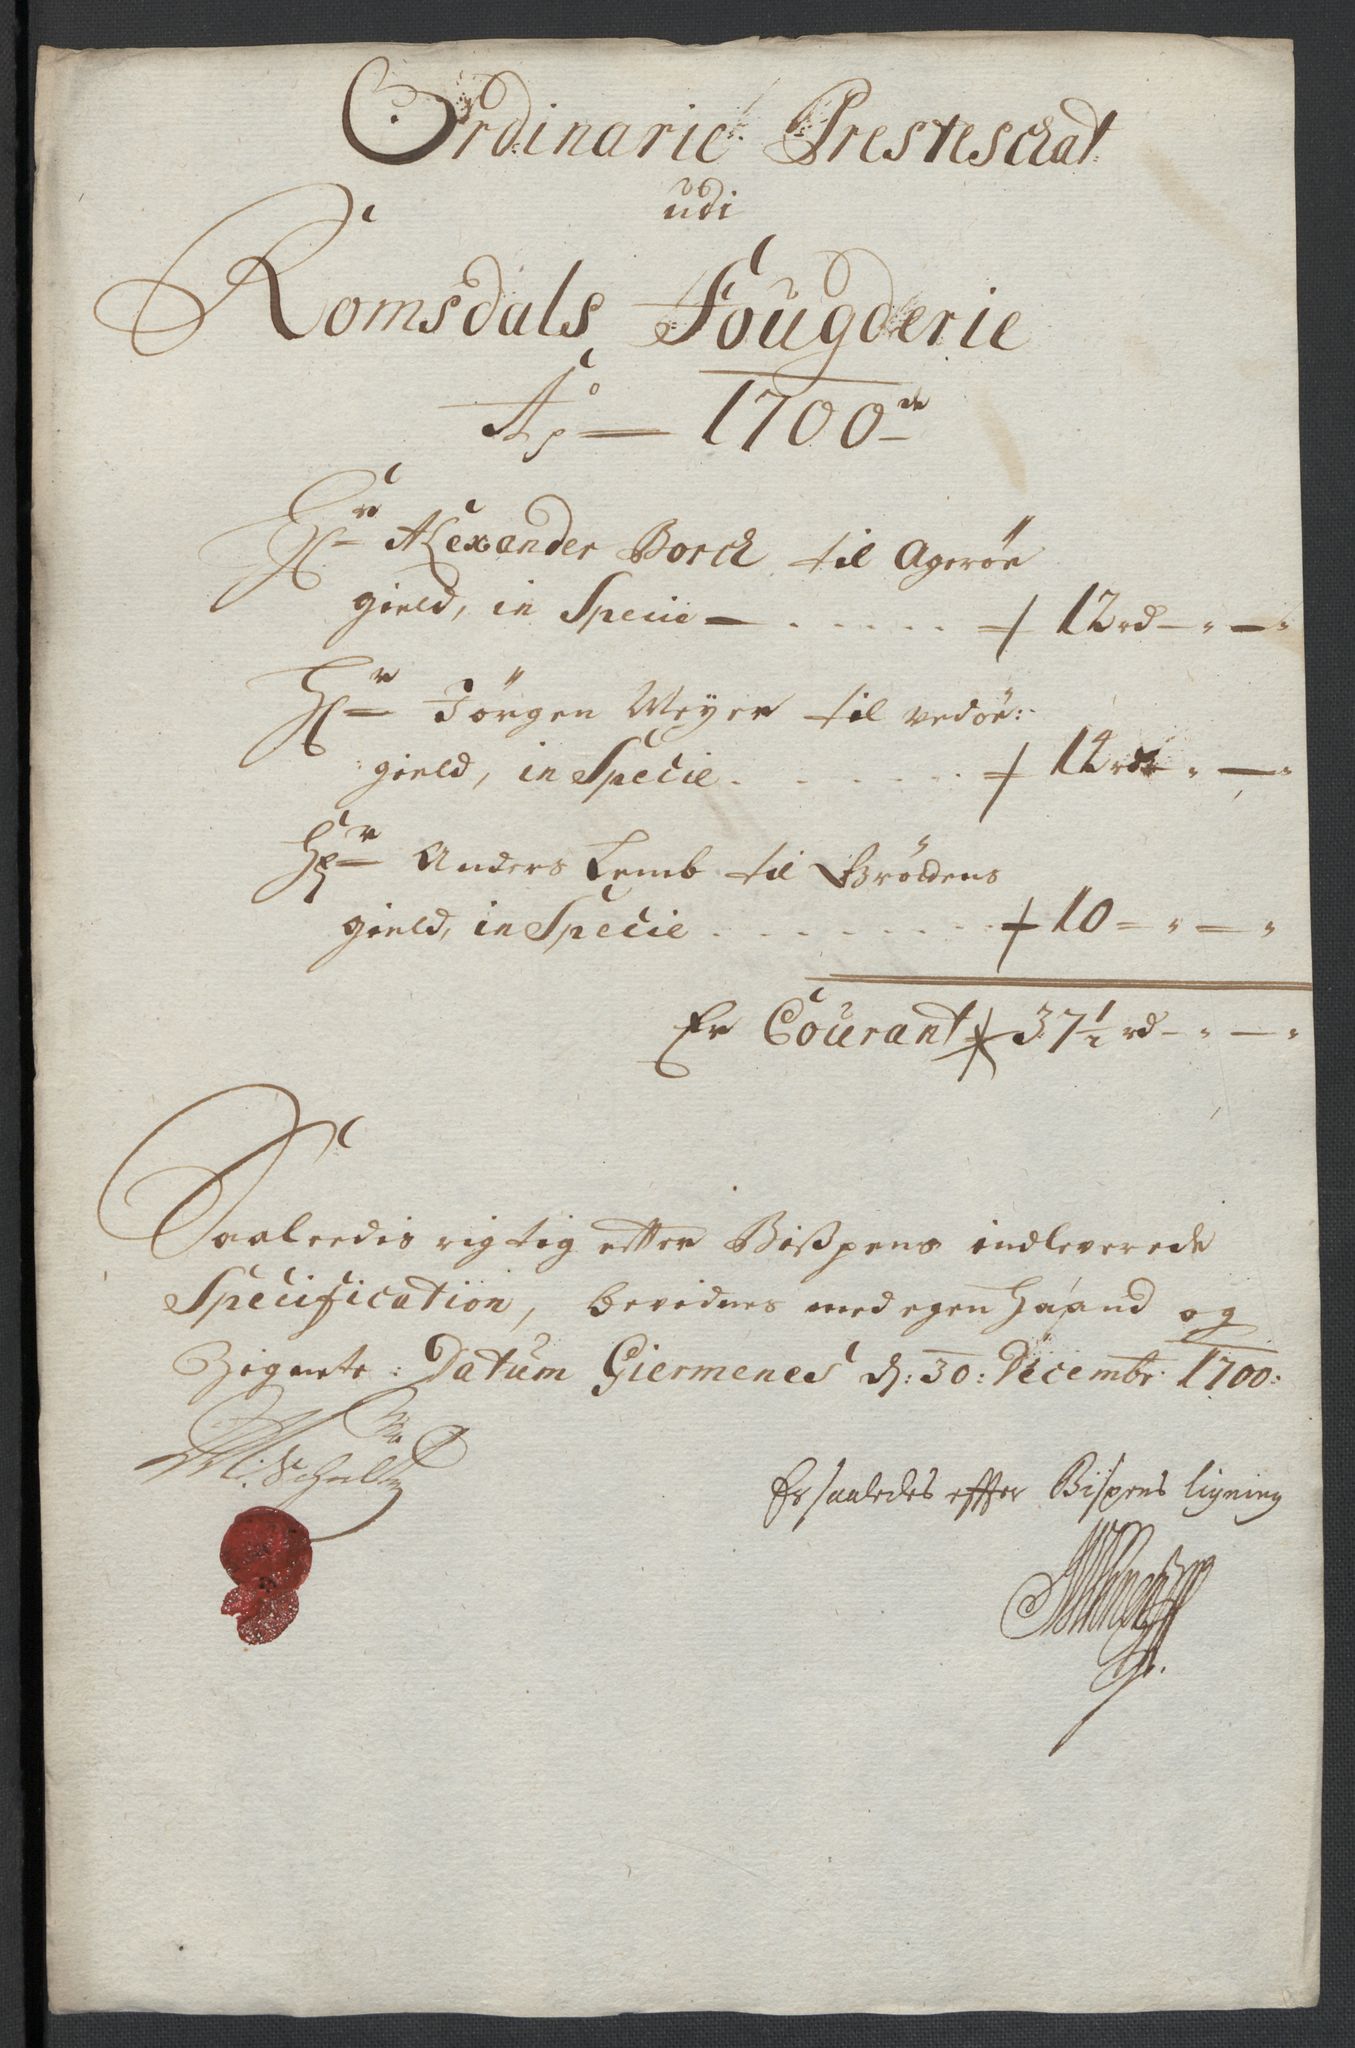 Ordinarie Presteschat
udi
Romsdals Fougderie
Aō 1700de
Hr Alexander Borch til Agerøe
gield, in Specie - . . . . . 12 rd - " - "
Hr Jørgen Meyer til Vedøe:
gield, in Specie . . . . . 12 rd - " - "
Hr Anders Lemb til Grøttens
gield, in Specie . . . . . . . 10 - " - "
Er Courant 37½ rd - " - "
Saaleedis rigtig effter Bißpens indleverede
Specification, bevidnes med egen Haand og
Zignete: Datum Giermenes d: 30: Decembr: 1700:
Er saaledes effter Bispens ligning